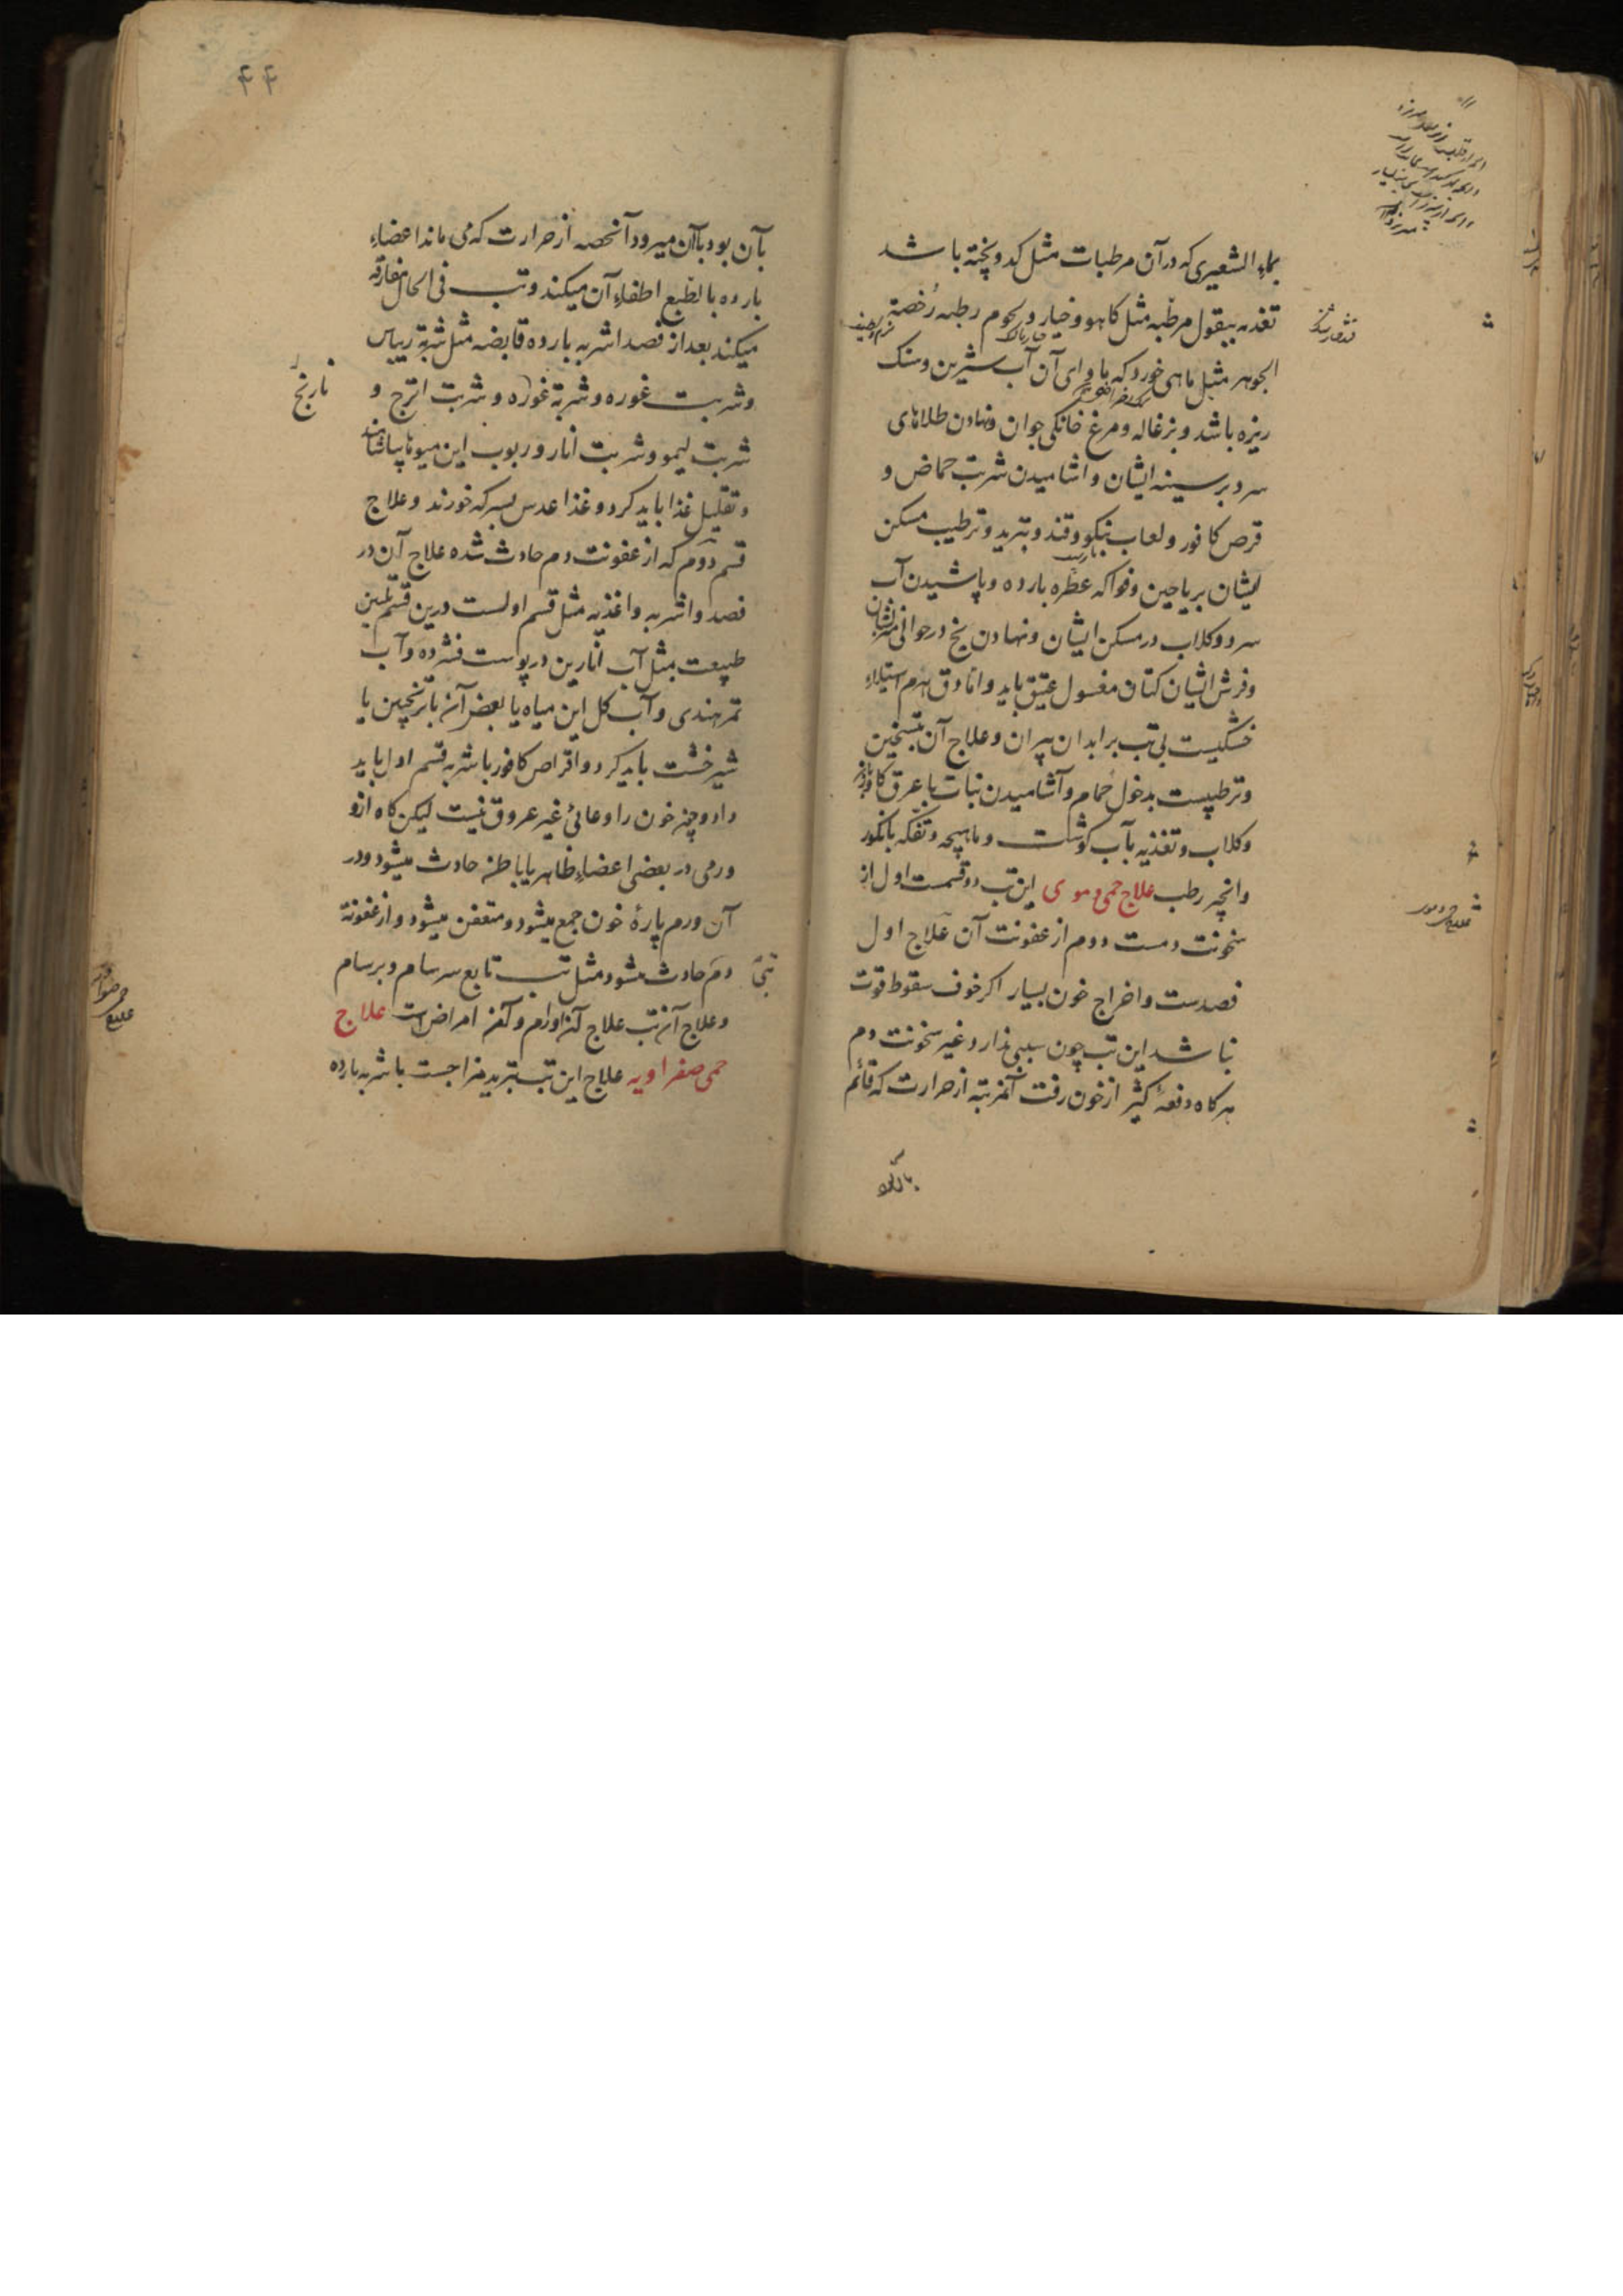 بماء الشعیری که در آن مرطبات مثل کدو پخته باشد
تغذیه ببقول مرطبه مثل کاهو و خیار و لحوم رطبه رخصة
الجوهر مثل ماهی خورد که ماوای آن آب شیرین و سنک
ریزه باشد و بزغاله و مرغ خانکی جوان و نهادن طلاهای
سرد بر سینه ایشان و اشامیدن شربت حماض و
قرص کافور و لعاب بنکو و قند و تبرید و ترطیب مسکن
ایشان بریاحین و فواکه عطره بارده و پاشیدن آب
سرد و کلاب در مسکن ایشان و نهادن یخ در حوالی
و فرش ایشان کتان مغسول عتیق باید و اما دق هرم استیلاء
خشکیست بی تب بر ابدان پیران و علاج آن بتسخین
و ترطیبست بدخول حمام و آشامیدن نبات با عرق کاوزبان
و کلاب و تغذیه بآب کوشت و ماهیچه و تفکه بانکور
و انجیر رطب علاج حمی دموی این تب دو قسمت اول از
سخونت دمست دوم از عفونت آن علاج اول
فصدست و اخراج خون بسیار اکر خوف سقوط قوت
نباشد این تب چون سببی ندارد غیر سخونت دم
هرکاه دفعهٔ کثیر از خون رفت آنمرتبه از حرارت که قائم
۴۴
بآن بود بآن میرود آنحصه از حرارت که می ماند اعضاء
بارده بالطبع اطفاء آن میکند و تب فی الحال مفارقه
میکند بعد از فصد اشربه بارده قابضه مثل شربة ریباس
و شربت غوره و شربة غوره و شربت اترج و
نارنج
شربت لیمو و شربت انار و ربوب این میوها بیاشامند
و تقلیل غذا باید کرد و غذا عدس بسرکه خورند و علاج
قسم دوم که از عفونت دم حادث شده علاج آن در
فصد و اشربه و اغذیه مثل قسم اولست درین قسم تلیین
طبیعت بمثل آب انارین در پوست فشرده و آب
تمر هندی و آب کل این میاه یا بعض آن با ترنجبین یا
شیرخشت باید کرد و اقراص کافور باشربه قسم اول باید
داد و چون خون را وعائی غیر عروق نیست لیکن کاه ازو
ورمی در بعضی اعضاء ظاهر یا باطن حادث میشود و در
آن ورم پارهٔ خون جمع میشود و متعفن میشود و از عفونة
دم حادث میشود مثل تب تابع سرسام و برسام
تبی
و علاج آن تب علاج آن اورام و آن امراض است علاج
حمی صفراویه علاج این تب بتبرید مزاجست باشربه بارده